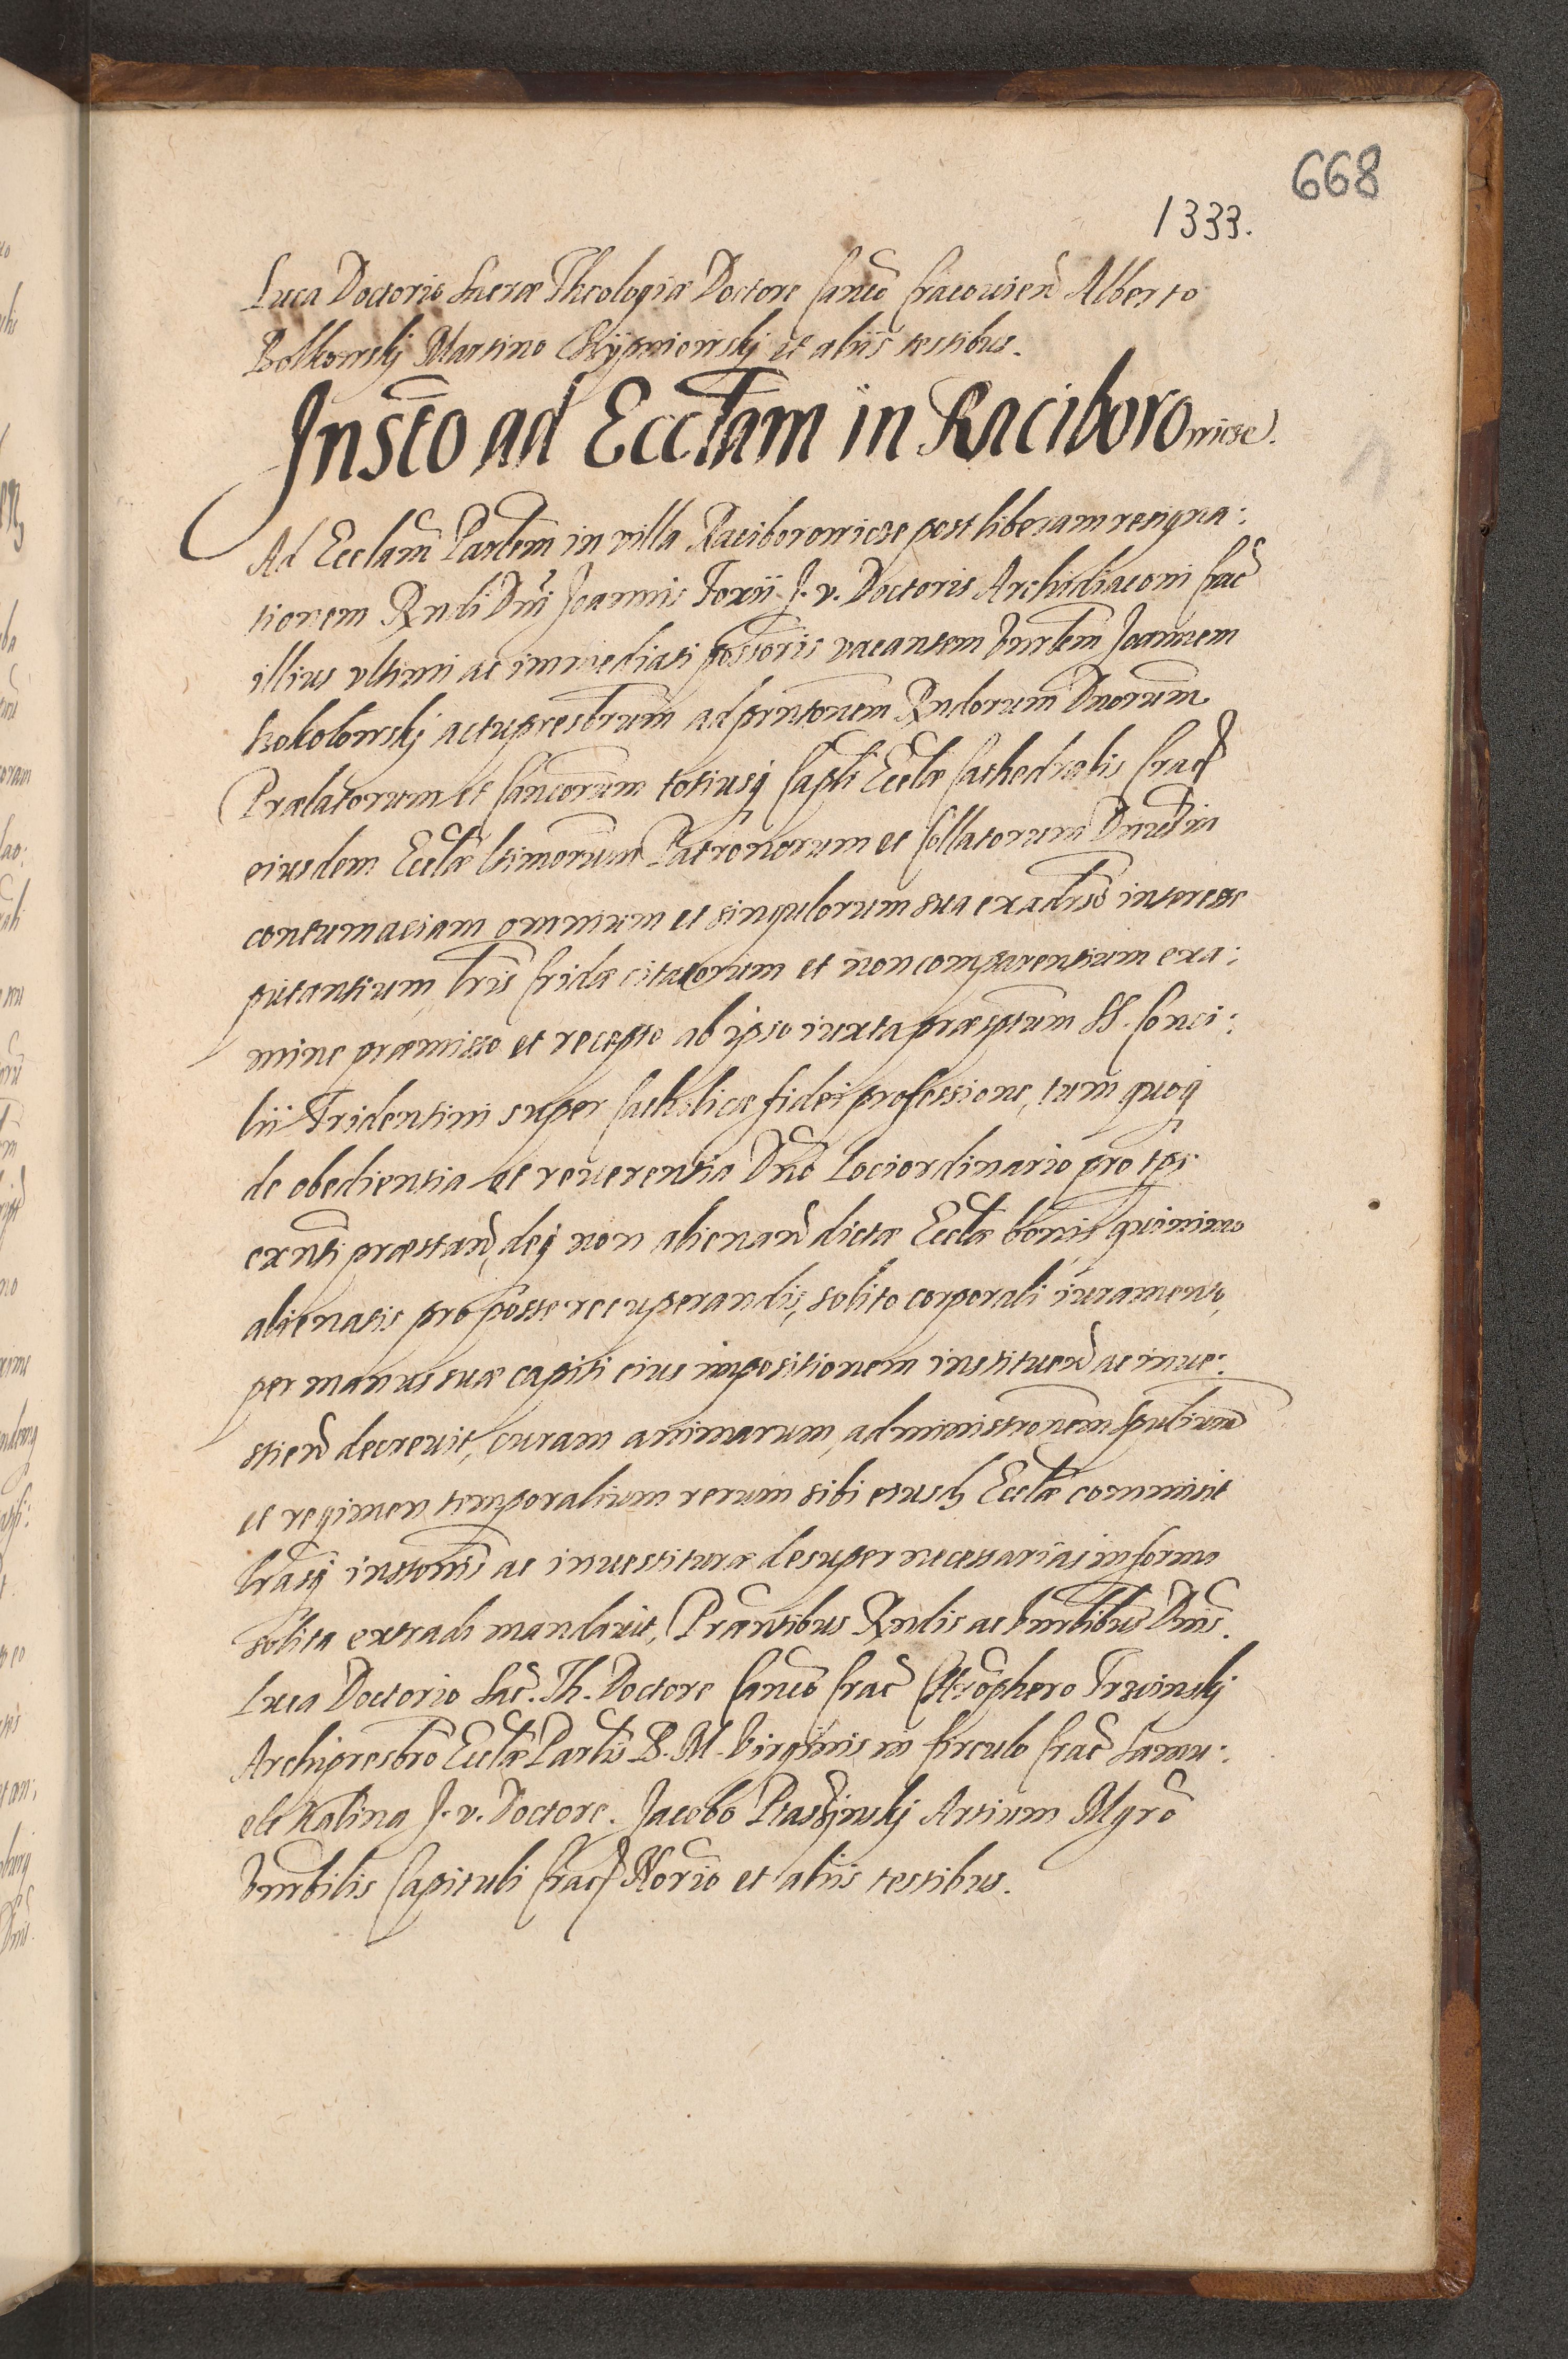 668
1333.
Luca Doctorio Sacræ Theologiæ Doctore Canco Cracovien Alberto
Bolkowskj Martino et aliis testibus.
Insto ad Ecclam in Raciborowicze.
Ad Ecclam Parlem in villa Raciborowicze post liberam resigna:
tionem Rndi Dni Joannis Foxii J. v. Doctoris Archidiaconi Crac
illius vltimi ac immediati possoris vacantem Vnrlem Joannem
Kokolowskj actu presbrum ad prntonem Rndorum Dnorum
Prælatorum et Cancorum totiusq Capli Ecclæ Cathedralis Crac
eiusdem Ecclæ ltimorum Patronorum et Collatorum Dnus in
contumaciam omnium et singulorum sua ex adrso interesse
putantium, lris Cridæ citatorum et non comparentium exa:
mine præmisso et recepto ab ipso iuxta præsptum SS. Conci:
lii Tridentini super Catholicæ fidei professione, tum quoq
de obedientia et reuerentia Dno Lociordinario pro tpe
exnti præstand, deq non alienand dictæ Ecclæ bonis quinimo
alienatis pro posse recuperandis, solito corporali iuramento,
per manus suæ capiti eius impositionem instituend ac inue:
stiend decreuit, curam animarum, administronem spulium
et regimen temporalium rerum sibi eiusd Ecclæ commisit
lrasq instonis ac inuestituræ desuper necessarias in forma
solita extradi mandauit, Præntibus Rndis ac Vnrlibus Dnis.
Luca Doctorio Sac. Th. Doctore Canco Crac Christophero Trzcinskj
Archipresbro Ecclæ Parlis B. M. Virginis in Circulo Crac Samu:
ele Kalina J. v. Doctore. Jacobo Artium Mgro
Vnrbilis Capituli Crac Norio et aliis testibus.